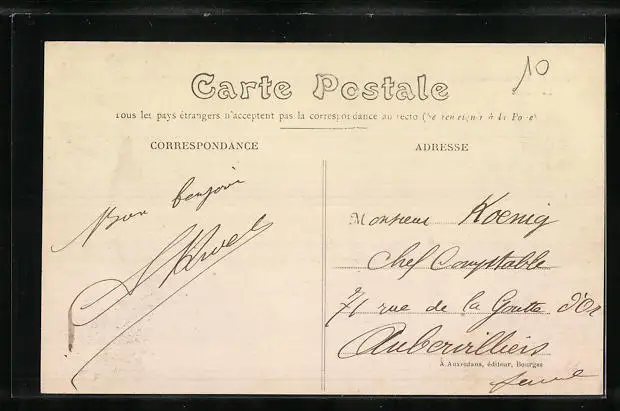 10
Carte Postale
Tous les pays étrangers n'acceptent pas la correspondance au recto (Se renseigner à la Poste)
CORRESPONDANCE
ADRESSE
Bon bonjour
Monsieur Koenig
Chef Comptable
71 rue de la Goutte d'Or
Aubervilliers
A. Auxenfans, éditeur, Bourges
Seine